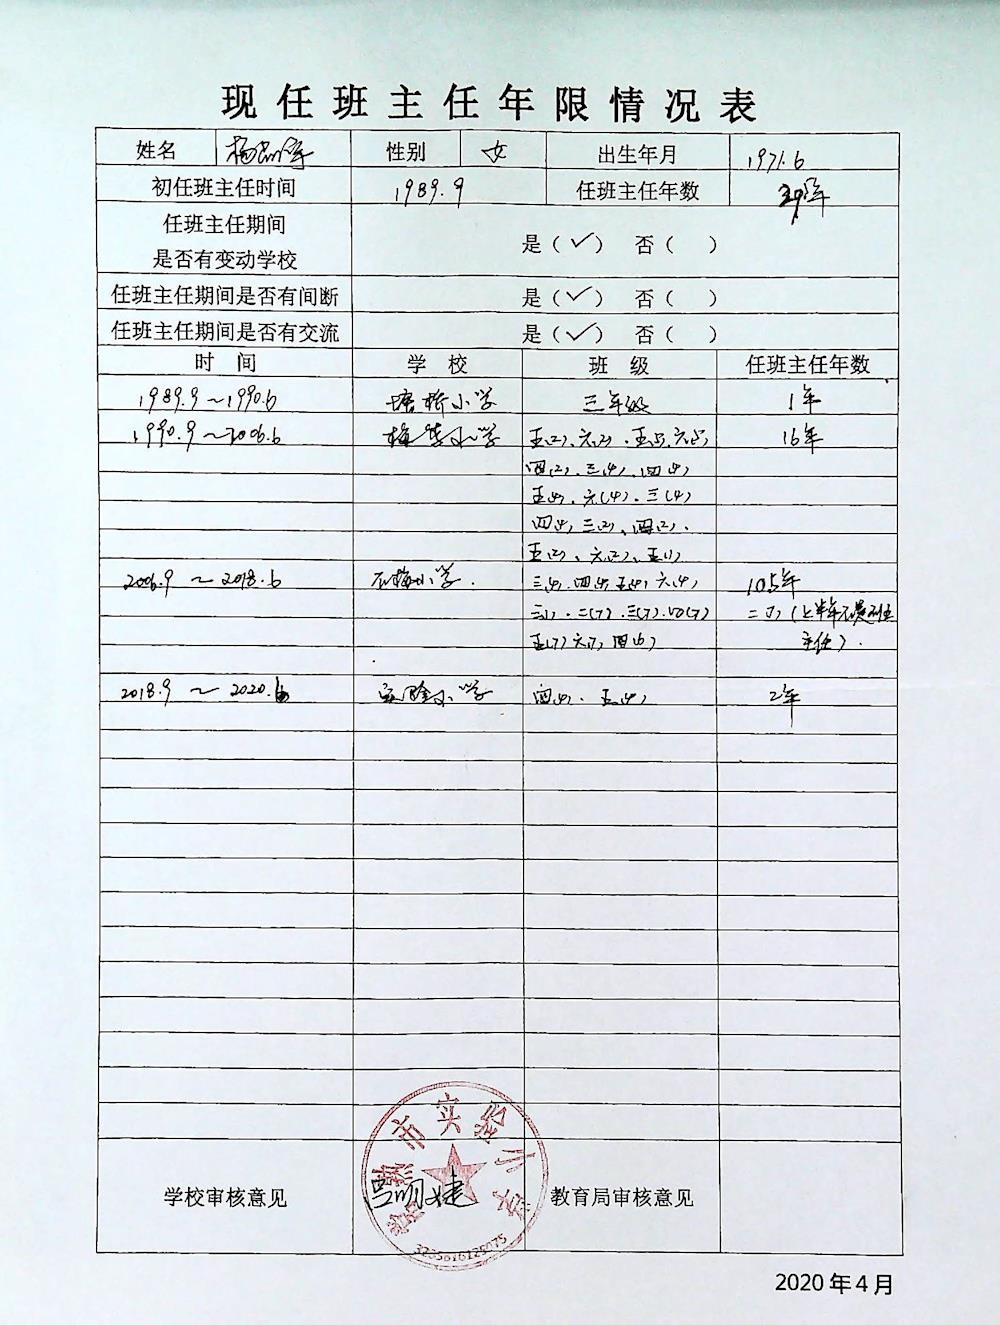 现任班主任年限情况表
姓名 性别 女 出生年月 1971.6
初任班主任时间 1989.9 任班主任年数
任班主任期间
是否有变动学校
是（✓） 否（ ）
任班主任期间是否有间断 是（✓） 否（ ）
任班主任期间是否有交流 是（✓） 否（ ）
时 间 学 校 班 级 任班主任年数
1989.9～1990.6 塘桥小学 三年级 1年
1990.9～2006.6 梅李小学 五(2)、六(2)、 16年
三(4)、四(4)
五(4)、六(4)、三(4)
四(4)、三(2)、四(2)、
五(2)、六(2)、五(1)
2006.9～2018.6 石梅小学. 六(4) 10.5年
二(7)、三(7)、四(7) (上半年不是班主
五(7) 主任).
2018.9～2020.6 实验小学 四(4)、五(4) 2年
常熟市实验小学
学校审核意见 教育局审核意见
2020年4月